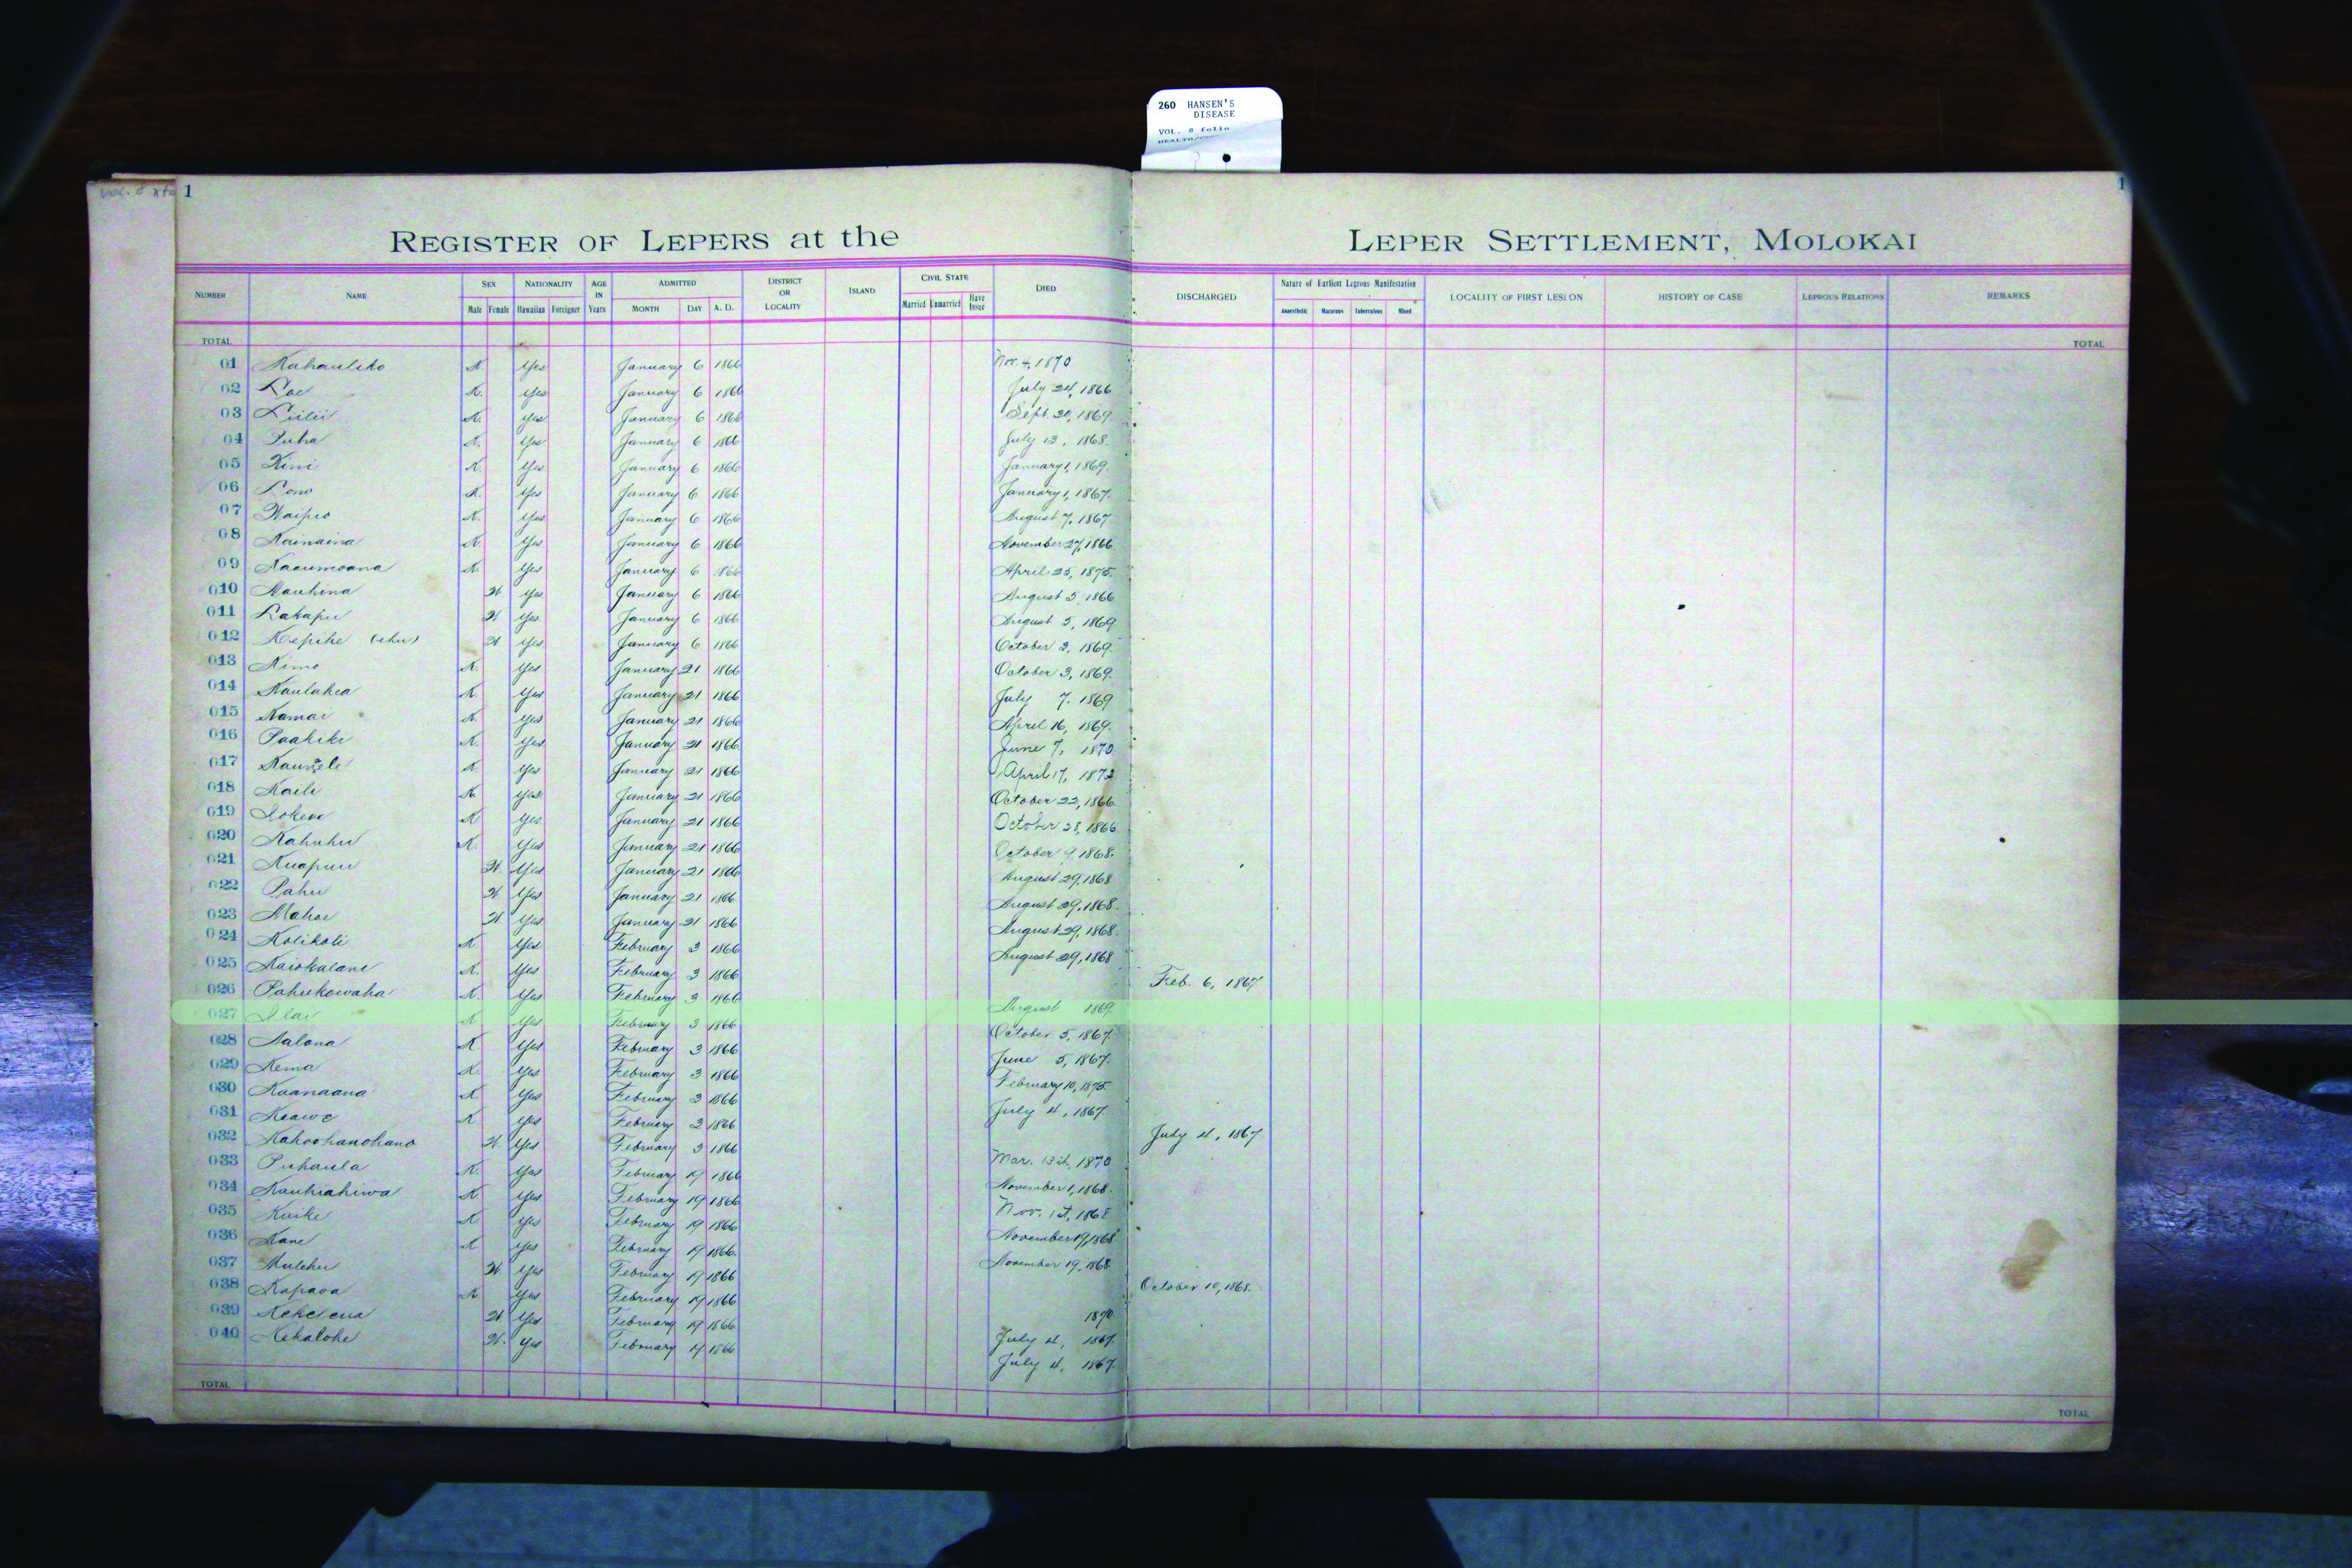 260 HANSEN'S
DISEASE
VOL. 8 folio
1
1
REGISTER OF LEPERS at the LEPER SETTLEMENT, MOLOKAI
NUMBER NAME SEX Male Female NATIONALITY Hawaiian Foreigner AGE IN Years ADMITTED MONTH DAY A. D. DISTRICT OR LOCALITY ISLAND CIVIL STATE Married Unmarried Have Issue DIED DISCHARGED Nature of Earliest Leprous Manifestation Anaesthetic Macurous Tuberculous Mixed LOCALITY OF FIRST LESION HISTORY OF CASE LEPROUS RELATIONS REMARKS
TOTAL TOTAL
01 Kahauliko K. Yes January 6 1866 Nov. 4, 1870
02 Loe K. Yes January 6 1866 July 24, 1866
03 Liilii K. Yes January 6 1866 Sept. 20, 1869
04 Puha K. Yes January 6 1866 July 13, 1868.
05 Kini K. Yes January 6 1866 January 1, 1869.
06 Lono K. Yes January 6 1866 January 1, 1867.
07 Waipio K. Yes January 6 1866 August 7, 1867
08 Kainaina K. Yes January 6 1866 November 27, 1866
09 Kaaumoana K. Yes January 6 1866 April 25, 1875.
010 Nauhina W Yes January 6 1866 August 5, 1866
011 Lakapu W Yes January 6 1866 August 5, 1869
012 Kepihe (ehu) W Yes January 6 1866 October 3, 1869.
013 Kimo K. Yes January 21 1866 October 3, 1869.
014 Kaulahea K Yes January 21 1866 July 7, 1869
015 Kamai K. Yes January 21 1866 April 16, 1869.
016 Paakiki K. Yes January 21 1866 June 7, 1870
017 K. Yes January 21 1866 April 17, 1872
018 Kaili K. Yes January 21 1866 October 22, 1866
019 Iokewe K Yes January 21 1866 October 28, 1866
020 Kahuhu K. Yes January 21 1866 October 9, 1868.
021 Kuapuu W. Yes January 21 1866 August 29, 1868
022 Pahu W Yes January 21 1866 August 29, 1868.
023 Mahoe W Yes January 21 1866 August 29, 1868.
024 Kolikoli K Yes February 3 1866 August 29, 1868
025 Kaiokalani K. Yes February 3 1866 Feb. 6, 1867
026 Pahukowaha K. Yes February 3 1866 August 1869
027 Ilai K Yes February 3 1866 October 5, 1867
028 Aalona K Yes February 3 1866 June 5, 1867.
029 Kema K. Yes February 3 1866 February 10, 1875
030 Kaanaana K Yes February 3 1866 July 4, 1867
031 Keawe K. Yes February 3 1866 July 4, 1867
032 Kahoohanohano W. Yes February 3 1866 Mar. 13th, 1870
033 Puhaula K Yes February 19 1866 November 1, 1868.
034 Kauhiahiwa K Yes February 19 1866 Nov. 1st, 1868
035 Kuike K Yes February 19 1866 November 19, 1868
036 Kane K Yes February 19 1866 November 19, 1868
037 Mulehu W Yes February 19 1866 October 10, 1868.
038 Kapaoa K. Yes February 19 1866 1870
039 Kekelena W Yes February 19 1866 July 4, 1867.
040 Kekalohe W. Yes February 19 1866 July 4, 1867.
TOTAL TOTAL